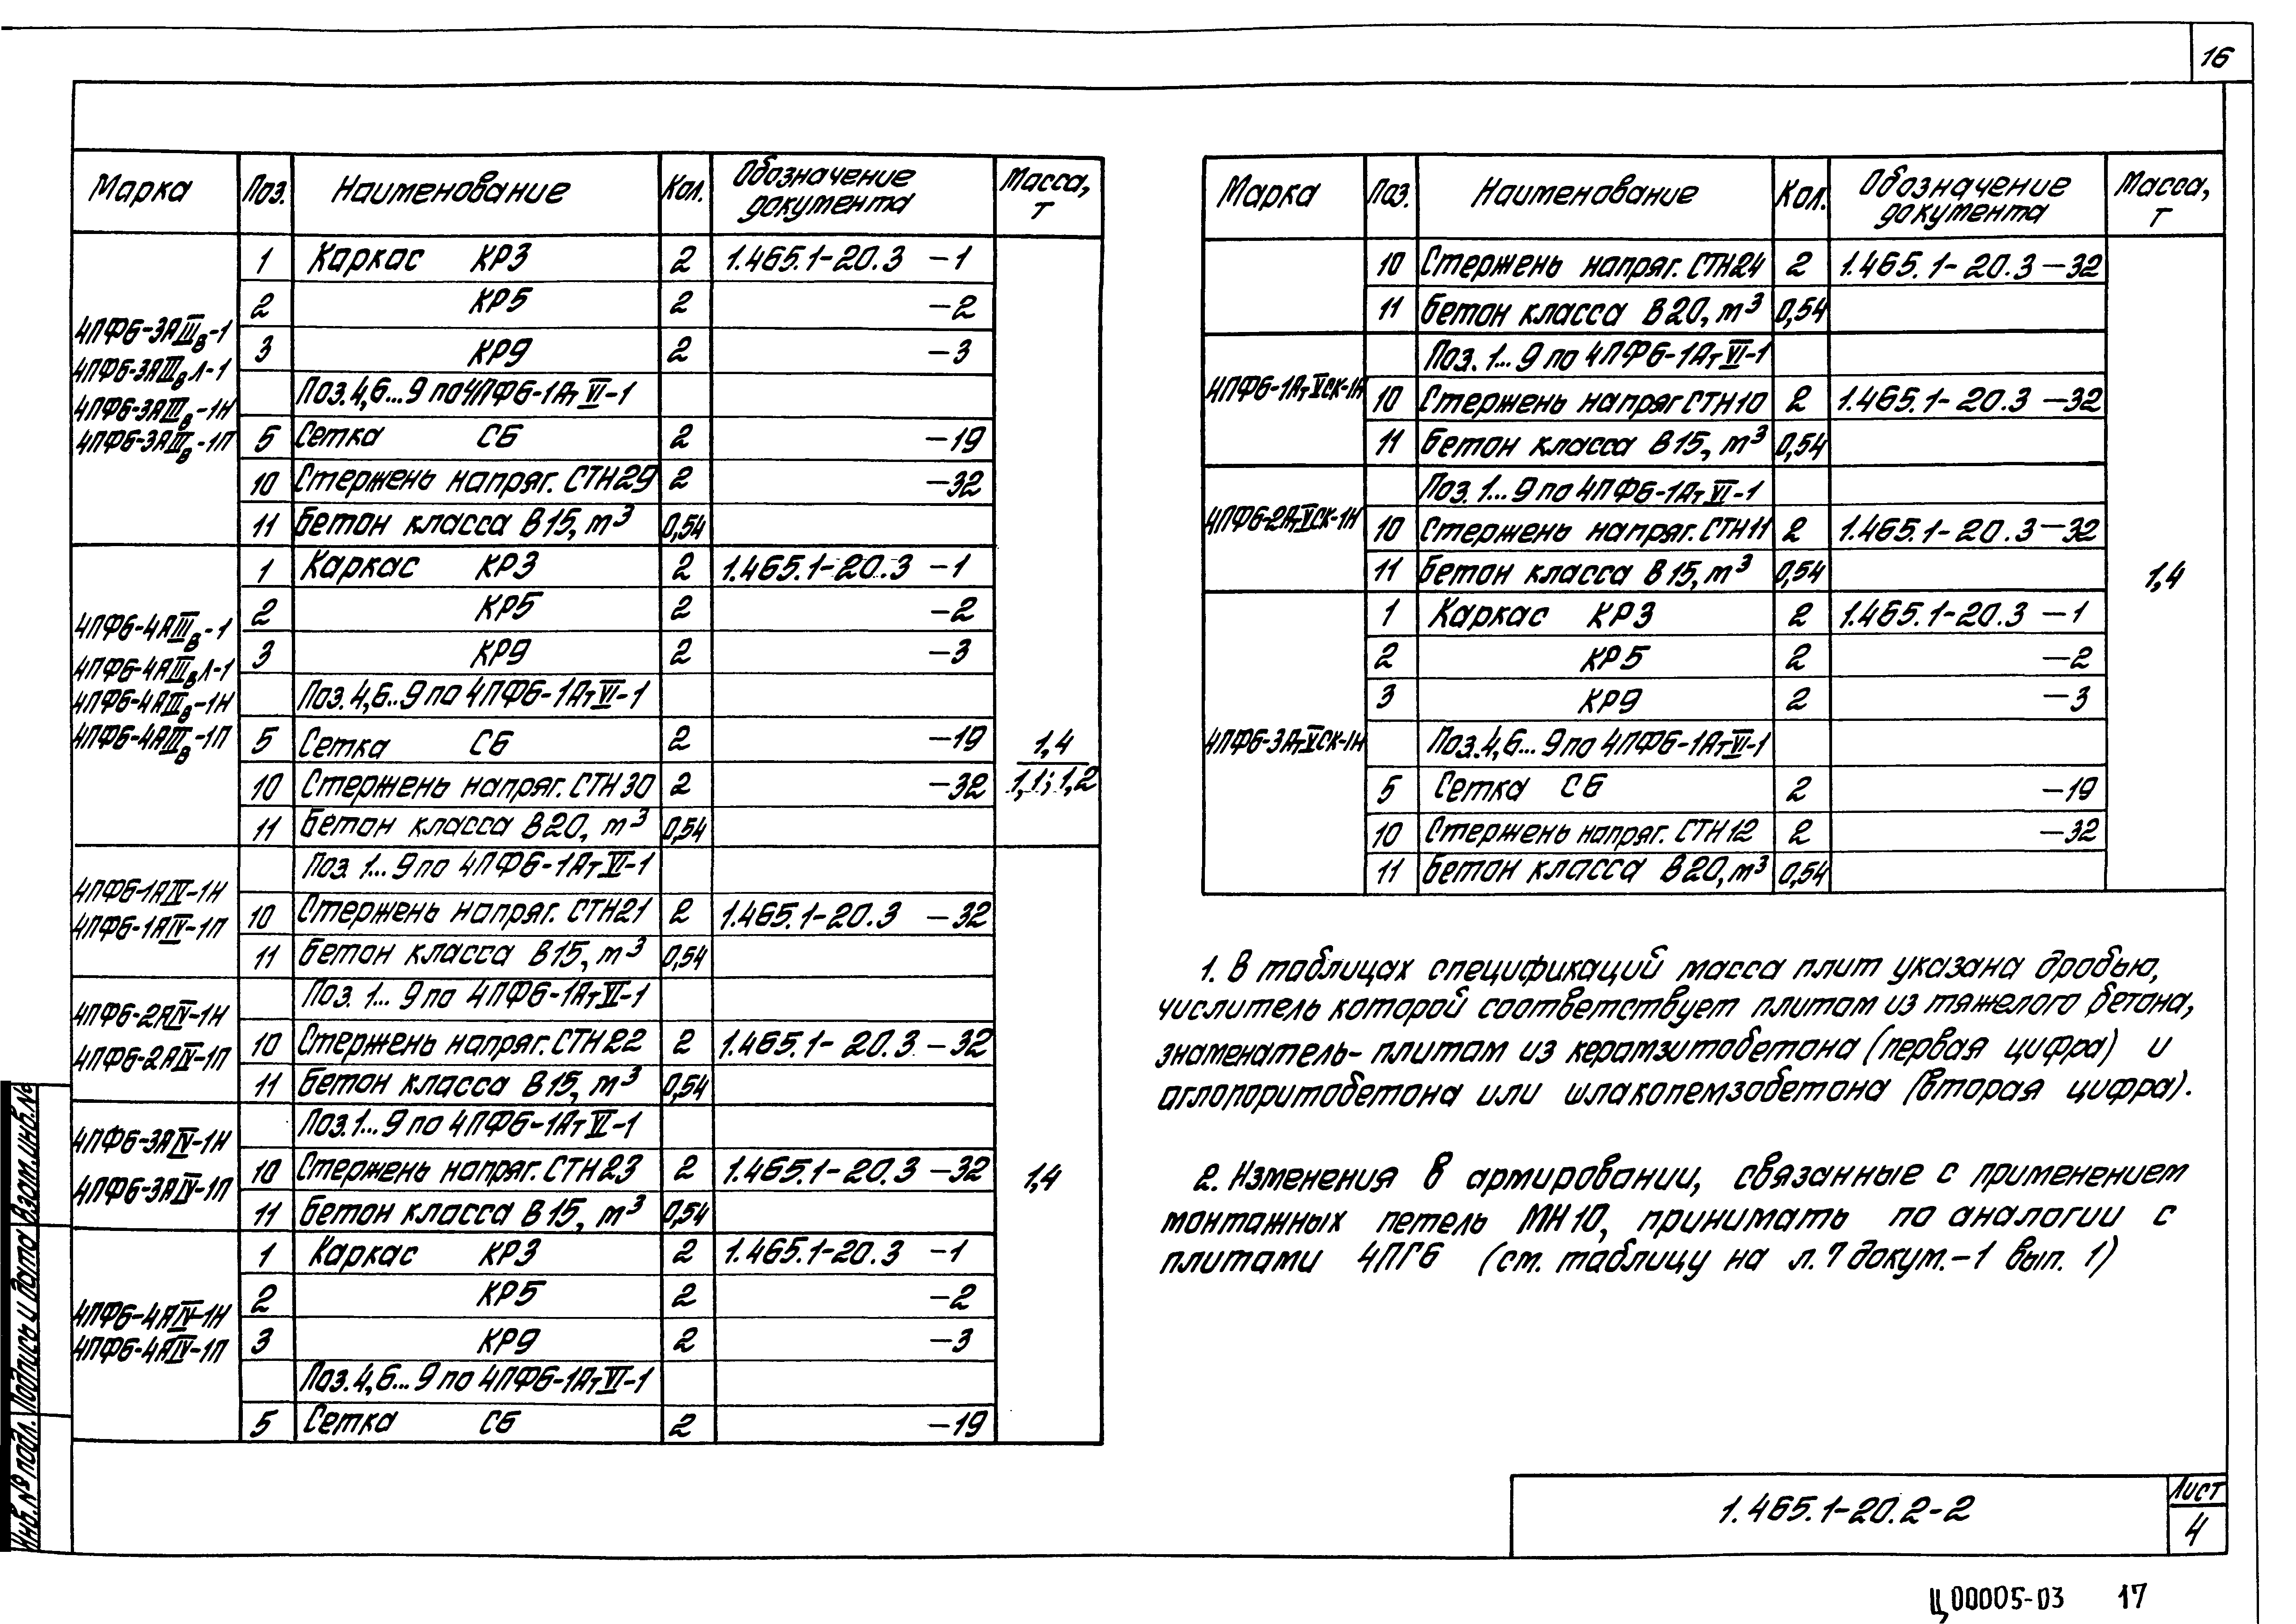 16
Марка Поз. Наименование Кол. Обозначение документа Масса, т
4ПФ6-3АIIIв-1
4ПФ6-3АIIIвЛ-1
4ПФ6-3АIIIв-1Н
4ПФ6-3АIIIв-1П
1 Каркас КР3 2 1.465.1-20.3 -1
2 КР5 2 -2
3 КР9 2 -3
Поз.4,6...9 по 4ПФ6-1АтVI-1
5 Сетка С6 2 -19
10 Стержень напряг. СТН29 2 -32
11 Бетон класса В15, m³ 0,54
4ПФ6-4АIIIв-1
4ПФ6-4АIIIвЛ-1
4ПФ6-4АIIIв-1Н
4ПФ6-4АIIIв-1П
1 Каркас КР3 2 1.465.1-20.3 -1
2 КР5 2 -2
3 КР9 2 -3
Поз.4,6...9 по 4ПФ6-1АтVI-1
5 Сетка С6 2 -19
10 Стержень напряг. СТН30 2 -32
11 Бетон класса В20, m³ 0,54
1,4
1,1; 1,2
4ПФ6-1АIV-1Н
4ПФ6-1АIV-1П
Поз. 1...9 по 4ПФ6-1АтVI-1
10 Стержень напряг. СТН21 2 1.465.1-20.3 -32
11 Бетон класса В15, m³ 0,54
4ПФ6-2АIV-1Н
4ПФ6-2АIV-1П
Поз. 1...9 по 4ПФ6-1АтVI-1
10 Стержень напряг. СТН22 2 1.465.1-20.3 -32
11 Бетон класса В15, m³ 0,54
4ПФ6-3АIV-1Н
4ПФ6-3АIV-1П
Поз.1...9 по 4ПФ6-1АтVI-1
10 Стержень напряг. СТН23 2 1.465.1-20.3 -32
11 Бетон класса В15, m³ 0,54
1,4
4ПФ6-4АIV-1Н
4ПФ6-4АIV-1П
1 Каркас КР3 2 1.465.1-20.3 -1
2 КР5 2 -2
3 КР9 2 -3
Поз.4,6...9 по 4ПФ6-1АтVI-1
5 Сетка С6 2 -19
Марка Поз. Наименование Кол. Обозначение документа Масса, т
10 Стержень напряг. СТН24 2 1.465.1-20.3 -32
11 Бетон класса В20, m³ 0,54
4ПФ6-1АтVСК-1Н
Поз. 1...9 по 4ПФ6-1АтVI-1
10 Стержень напряг СТН10 2 1.465.1-20.3 -32
11 Бетон класса В15, m³ 0,54
4ПФ6-2АтVСК-1Н
Поз. 1...9 по 4ПФ6-1АтVI-1
10 Стержень напряг. СТН11 2 1.465.1-20.3 -32
11 Бетон класса В15, m³ 0,54
1,4
4ПФ6-3АтVСК-1Н
1 Каркас КР3 2 1.465.1-20.3 -1
2 КР5 2 -2
3 КР9 2 -3
Поз.4,6...9 по 4ПФ6-1АтVI-1
5 Сетка С6 2 -19
10 Стержень напряг. СТН12 2 -32
11 Бетон класса В20, m³ 0,54
1. В таблицах спецификаций масса плит указана дробью,
числитель которой соответствует плитам из тяжелого бетона,
знаменатель- плитам из керамзитобетона (первая цифра) и
аглопоритобетона или шлакопемзобетона (вторая цифра).
2. Изменения в армировании, связанные с применением
монтажных петель МН10, принимать по аналогии с
плитами 4ПГ6 (см. таблицу на л.7 докум.-1 вып. 1)
Инв.№ подл. Подпись и дата Взам.инв.№
1.465.1-20.2-2
Лист
4
Ц00005-03 17